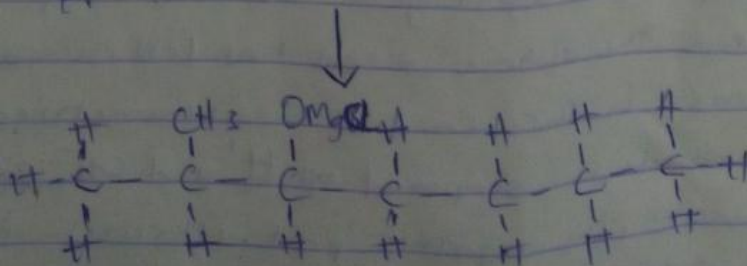 H CH3 OMgCl H H H H
H - C - C - C - C - C - C - C - H
H H H H H H H